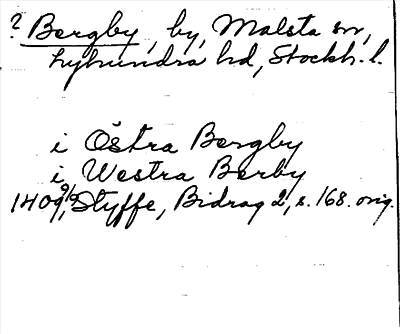 ? Bergby, by, Malsta sn,
Lyhundra hd, Stockh. l.
i Östra Bergby
i Westra Berby
1409 9/2, Styffe, Bidrag 2, s. 168. orig.